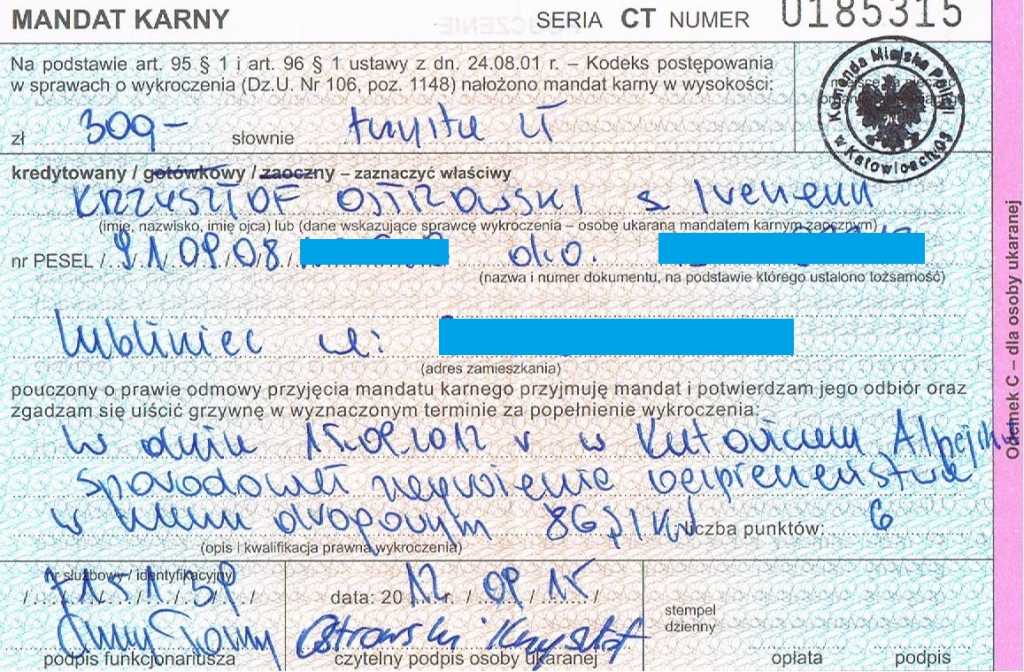 MANDAT KARNY SERIA CT NUMER 0185315
Na podstawie art. 95 § 1 i art. 96 § 1 ustawy z dn. 24.08.01 r. – Kodeks postępowania
w sprawach o wykroczenia (Dz.U. Nr 106, poz. 1148) nałożono mandat karny w wysokości:
zł 300,- słownie trzysta zł
Komenda Miejska Policji w Katowicach
kredytowany / gotówkowy / zaoczny – zaznaczyć właściwy
KRZYSZTOF OSTROWSKI s
(imię, nazwisko, imię ojca) lub (dane wskazujące sprawcę wykroczenia – osobę ukaraną mandatem karnym zaocznym)
nr PESEL / 91 09 08 d.o.
(nazwa i numer dokumentu, na podstawie którego ustalono tożsamość)
Lubliniec ul:
(adres zamieszkania)
pouczony o prawie odmowy przyjęcia mandatu karnego przyjmuję mandat i potwierdzam jego odbiór oraz
zgadzam się uiścić grzywnę w wyznaczonym terminie za popełnienie wykroczenia:
W dniu 15.09.2012 r w Katowicach
Spowodował zagrożenie bezpieczeństwa
w ruchu drogowym 86§1KW liczba punktów: 6
(opis i kwalifikacja prawna wykroczenia)
nr służbowy / identyfikacyjny
data: 2012 r. / 09 / 15 /
stempel
dzienny
Ostrowski Krzysztof
podpis funkcjonariusza czytelny podpis osoby ukaranej opłata podpis
Odcinek C – dla osoby ukaranej